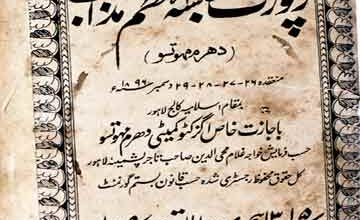 رپورٹ جلسہ اعظم مذاہب
(دھرم مہوتسو)
منعقدہ ۲۶-۲۷-۲۸-۲۹ دسمبر ۱۸۹۶ء
بمقام اسلامیہ کالج لاہور
باجازت خاص اگزکٹو کمیٹی دھرم مہوتسو
حسب فرمایش خواجہ غلام محی الدین صاحب تاجر پشمینہ لاہور
کل حقوق محفوظ رجسٹری شدہ حسب قانون بستم گورنمنٹ